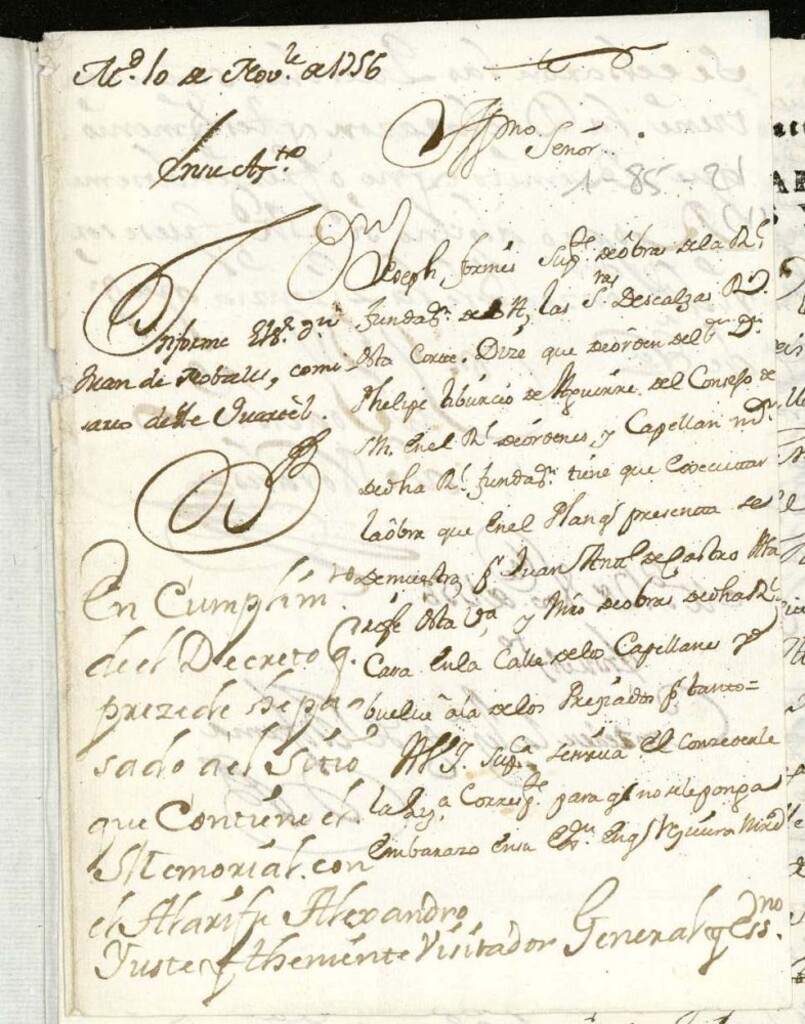 M.d 10 de Nov.re de 1756
Yll.mo Señor
En su Ay.to
Informe el S.r D.n
Juan de Robales, comi
sario deste Quartel.
D.n Joseph, formes Sup.te de obras de la R.l
fundaz.n de las S.ras Descalzas R.s
desta Corte. Dize que de orden del S.r D.n
Phelipe tibúrcio de Aguirre, del Consejo de
S.M. en el R.l de órdenes, y Capellan m.or
de dha R.l fundaz.n tiene que executar
la óbra que en el Plan q.e presenta se
demuestra, p.r Juan Ant.o de Castro Ala
rife desta V.a y Mro de obras de dha R.l
Casa en la Calle de los Capellanes y
buelue á la de los Preziados p.r tanto=
A V.S.Y. Sup.ca se sirua el conzederle
la Liz.a Corresp.te para q.e no se le ponga
embarazo en su ex.on en q.e Reziuira Mrd
En Cumplim.to
del Decreto q.e
prezede se ha pa
sado al Sitio
que Contiene el
Memorial. con
el Alarife Alexandro
Yuste y themiente Visitador General y Ess.no